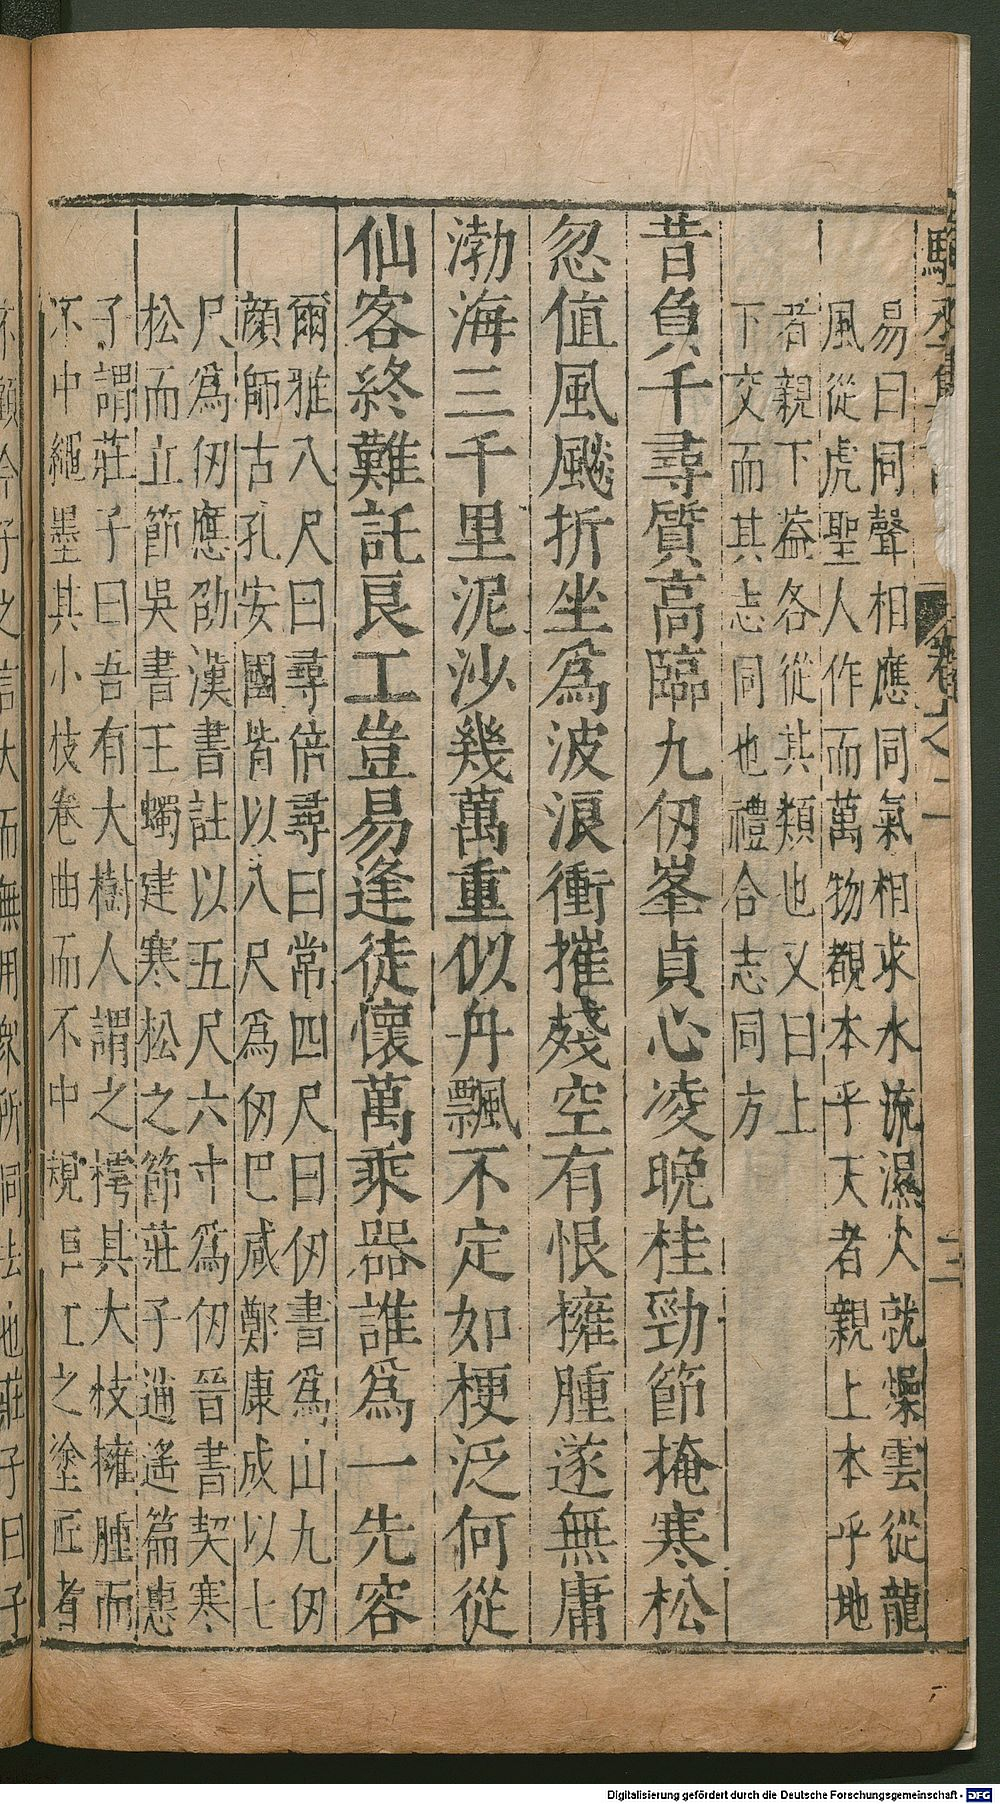 易曰同聲相應同氣相求水流濕火就燥雲從龍
風從虎聖人作而萬物覩本乎天者親上本乎地
者親下益各從其類也又曰上
下交而其志同也禮合志同方
昔負千尋質高臨九仞峯貞心凌晚桂勁節掩寒松
忽值風飈折坐爲波浪衝摧殘空有恨擁腫遂無庸
渤海三千里泥沙幾萬重似舟飄不定如梗泛何從
仙客終難託良工豈易逢徒懷萬乘器誰爲一先容
爾雅八尺曰尋倍尋曰常四尺曰仞書爲山九仞
顔師古孔安國皆以八尺爲仞巴咸鄭康成以七
尺爲仞應劭漢書註以五尺六寸爲仞晉書契寒
松而立節吳書王蠋建寒松之節莊子逍遙篇惠
子謂莊子曰吾有大樹人謂之樗其大枝擁腫而
不中繩墨其小枝卷曲而不中規巨工之塗匠者
不顧今子之言大而無用衆所同去也莊子曰子
卷之二
三
Digitalisierung gefördert durch die Deutsche Forschungsgemeinschaft - DFG